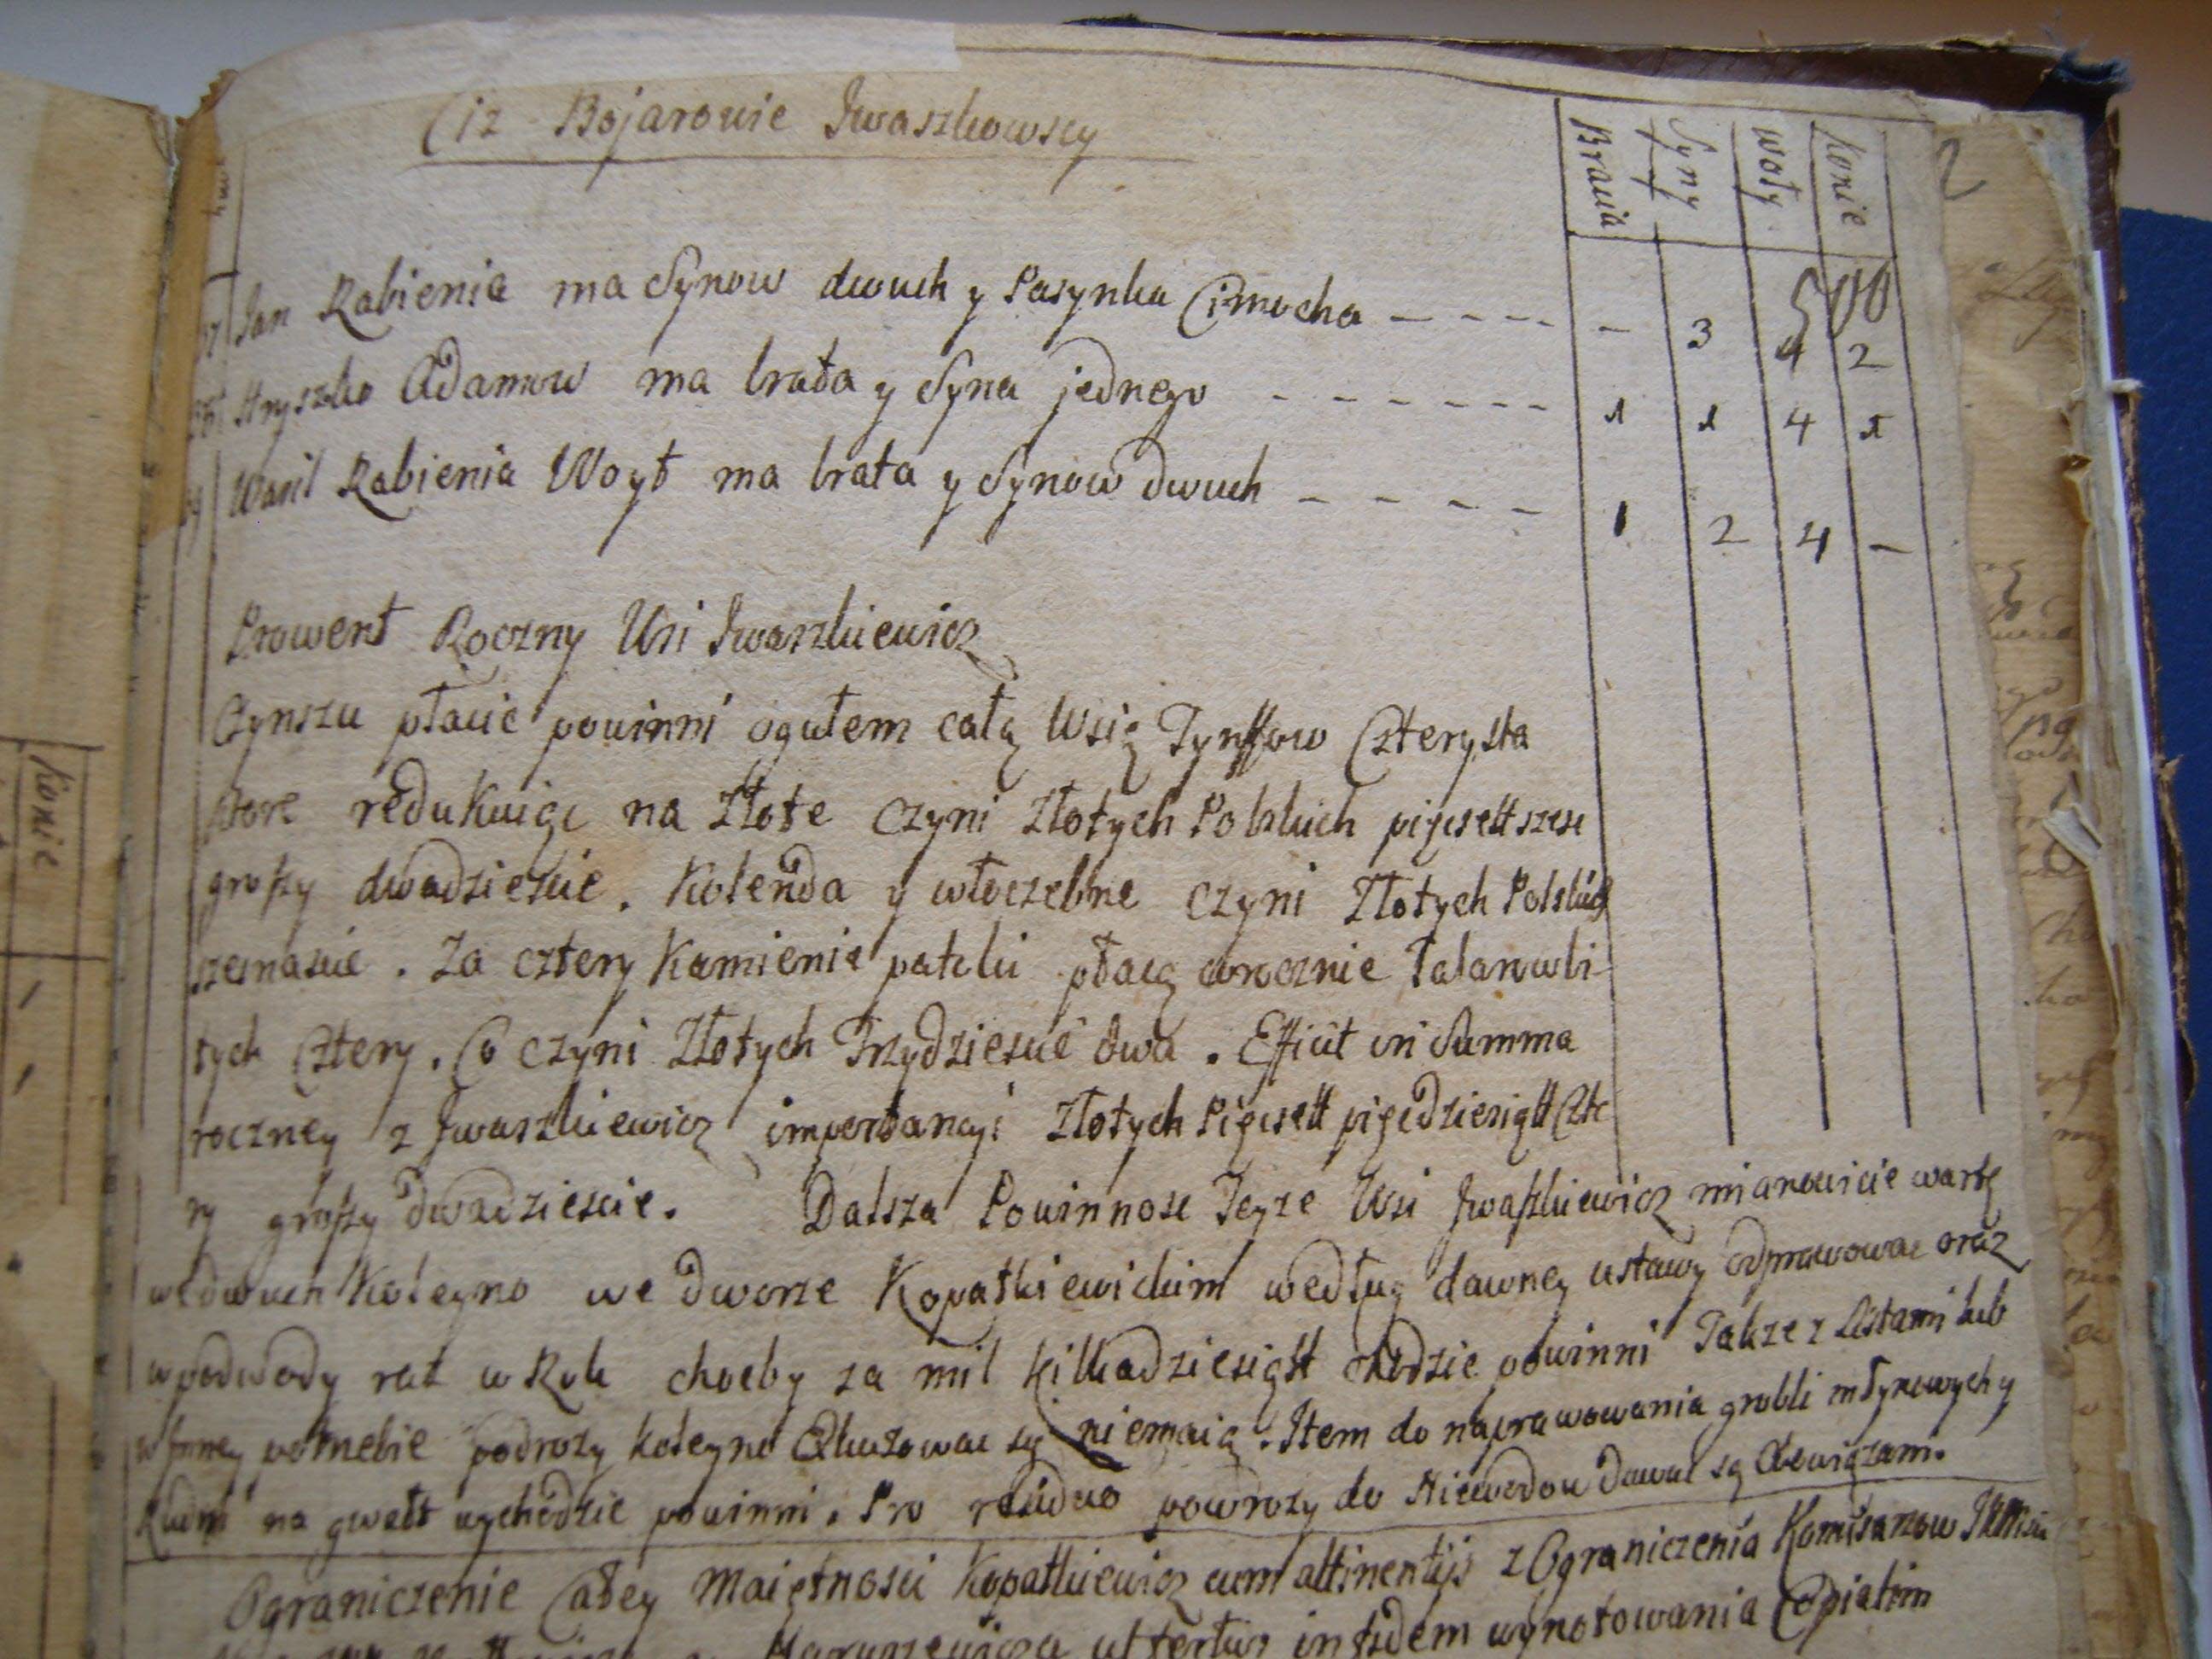 Ciż Bojarowie Iwaszkowscy
Bracia Syny Woły Konie
2
500
Jan Rabienia ma Synow dwuch y Pasynka Cimocha - - - - - 3 4 2
Hryszko Adamow ma brata y Syna jednego - - - - - - - 1 1 4 1
Wasil Rabienia Woyt ma brata y Synow dwuch - - - - 1 2 4 -
Prowent Roczny Wsi Iwaszkiewicz
Czynszu płacić powinni ogułem całą Wsią Tynffow Czterysta
ktore redukuiąc na Złote czyni Złotych Polskich pięcsett szesc
groszy dwadziescie. Kolenda y włoczebne czyni Złotych Polskich
szesnascie. Za cztery Kamienie patoki płacą corocznie Talarow bi-
tych Cztery. Co czyni Złotych Trzydziescie dwa. Efficit in Summa
roczney z Iwaszkiewicz importancyi Złotych Pięcsett pięcdziesiątt Czte
ry groszy dwadziescie. Dalsza Powinnosc Teyze Wsi Iwaszkiewicz mianowicie wartę
we dwuch koleyno we dworze Kopatkiewickim według dawney ustawy odprawować oraz
w podwody raz w Rok choćby za mil kilkadziesiątt chodzic powinni Takze z Listami lub
w inney potrzebie podrozy koleyno Exkuzowac się nie maią. Item do naprawowania grobli młynowych y
Rudni na gwałt wychodzic powinni. Pro residuo powrozy do Niewodow dawac są obowiązani.
Ograniczenie Całey Maiętnosci Kopatkiewicz cum attinentijs z Ograniczenia Komisarzow
ut fertur in fidem wynotowania Copiatim
Konie